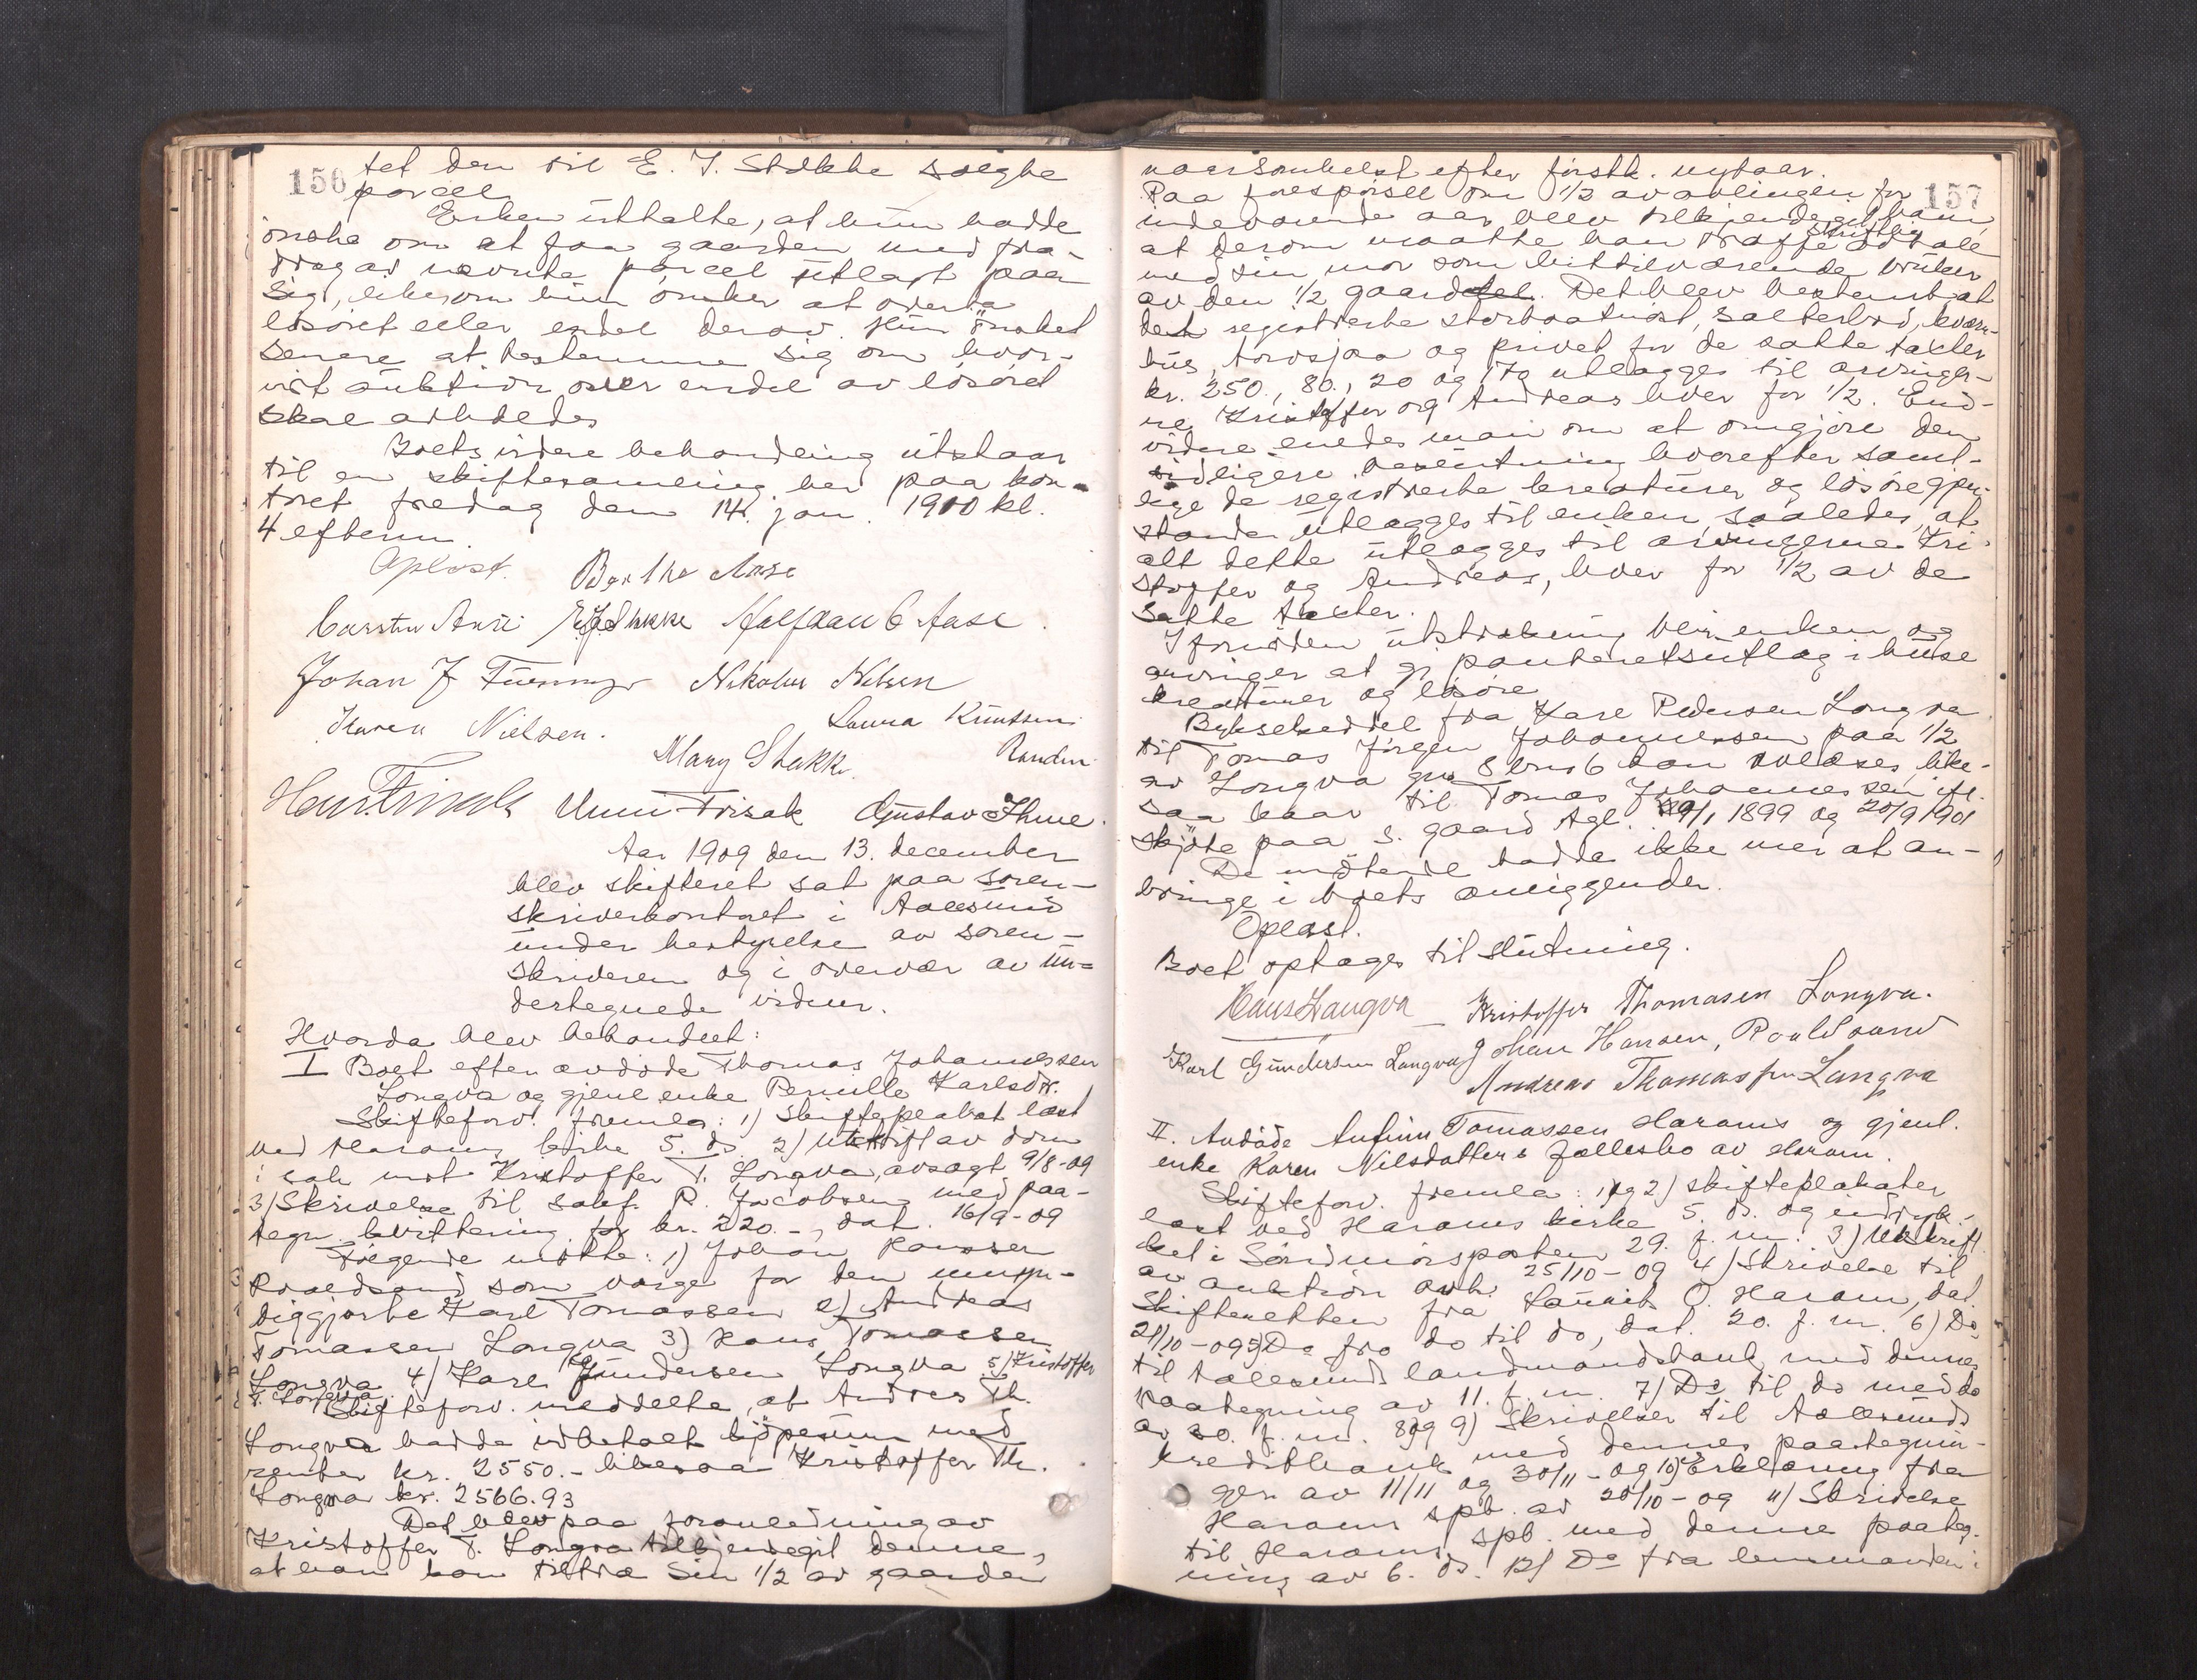 156
tet den til E. J. Stokke solgte
parcel
Enken uttalte, at hun hadde
ønske om at faa gaarden med fra-
drag av nævnte parcel utlagt paa
sig, likesom hun ønsker at overta
løsøret eller endel derav. Hun ønsket
senere at bestemme sig om hvor-
vidt auktion over endel av løsøret
skal avholdes
Boets videre behandling utstaar
til en skiftesamling her paa kon-
toret fredag den 14. jan. 1910 kl.
4 efterm.
Oplæst. Berthe Aase
Carsten Aase E J Stokke Halfdan C Aase.
Johan J Nikolai Nilsen
Karen Nielsen. Laura Knutsen
Mary Stokke. Randi
Unni Frisak Gustav Thue.
Aar 1909 den 13. december
blev skifteret sat paa soren-
skriverkontoret i Aalesund
under bestyrelse av soren-
skriveren og i overvær av un-
dertegnede vidner.
Hvorda blev behandlet:
I Boet efter avdøde Thomas Johannessen
Longva og gjenl. enke Pernille Karlsdtr.
Skifteforv. fremla: 1) Skifteplakat læst
ved Harams kirke 5. ds. 2) Utskrift av dom
i sak mot Kristoffer T. Longva, avsagt 9/8-09
3) Skrivelse til sakf. R. Jacobsen med paa-
tegn. kvittering for kr. 220.-, dat. 16/9-09
Følgende møtte: 1) Johan Hansen
Roaldsand som verge for den umyn-
diggjorte Karl Tomassen 2) Andreas
Tomassen Longva 3) Hans Tomassen
Longva 4) Karl Gundersen Longva 5) Kristoffer
T. Longva.
Skifteforv. meddelte, at Andreas Th.
Longva hadde indbetalt kjøpesum med
renter kr. 2550.- likesaa Kristoffer Th.
Longva kr. 2566.93
Det blev paa foranledning av
Kristoffer T. Longva tilkjendegit denne,
at han kan tiltræ sin 1/2 av gaarden
157
naarsomhelst efter førstk. nytaar.
Paa forespørsel om 1/2 av avlingen for
indeværende aar blev tilkjendegit ham,
at derom maatte han træffe skriftlig avtale
med sin mor som hittilværende bruker
av den 1/2 gaard. Det blev bestemt at
det registrerte storbaatnøst, salterbod, kværn-
hus, torvsjaa og privet for de satte takster
kr. 250., 80., 20 og 170 utlægges til arvinger-
ne Kristoffer og Andreas hver for 1/2. End-
videre enedes man om at omgjøre den
tidligere beslutning hvorefter samt-
lige de registrerte kreaturer og løsøregjen-
stande utlægges til enken saaledes, at
alt dette utlægges til arvingerne Kri-
stoffer og Andreas, hver for 1/2 av de
satte takster.
I fornøden utstrækning blir enken og
arvinger at gi panteretsutlæg i huse
kreaturer og løsøre
Bykselseddel fra Karl Pedersen Longva
til Tomas Jørgen Johannessen paa 1/2
av Longva gno 8 brno 6 kan avlæses, like-
saa kaar til Tomas Johannessen ifl.
skjøte paa s. gaard tgl. 19/1 1899 og 20/9 1901
De møtende hadde ikke mer at an-
bringe i boets anliggender.
Oplæst.
Boet optages til slutning.
Hans Longva Kristoffer Thomasen Longva.
Karl Gundersen Longva Johan Hansen, Roaldsand
Andreas Thomassen Longva
II. Avdøde Anfinn Tomassen Harams og gjenl.
enke Karen Nilsdatters fællesbo av Haram.
Skifteforv. fremla: 1 og 2) skifteplakater
læst ved Harams kirke 5. ds. og indryk-
ket i Søndmørsposten 29. f. m. 3) Utskrift
av auktion avh. 25/10-09 4) Skrivelse til
skifteretten fra Laurits O. Haram, dat.
21/10-09 5) Do fra do til do, dat. 20. f. m. 6) Do
til Aalesunds landmandsbank med dennes
paategning av 11. f. m. 7) Do til do med do
av 30. f. m. 8 og 9) Skrivelser til Aalesunds
kreditbank med dennes paategnin-
ger av 11/11 og 30/11-09 10) Erklæring fra
Harams spb. av 28/10-09 11) Skrivelse
til Harams spb. med denne paateg-
ning av 6. ds. 12) Do fra lensmanden i